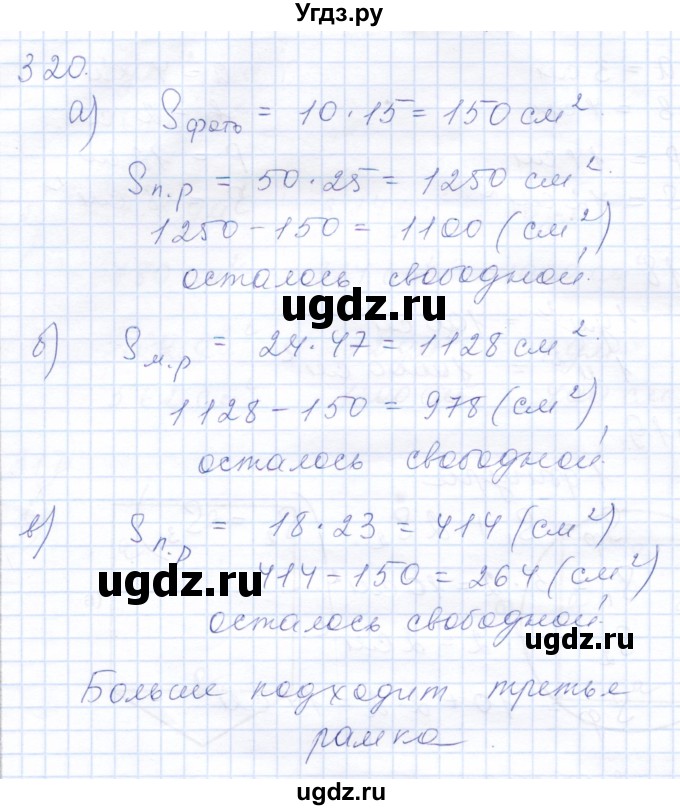 Угдз.ру
320.
а) Sфото = 10·15 = 150 см².
Sп.р = 50·25 = 1250 см².
1250-150 = 1100 (см²)
осталось свободной.
ugdz.ru
б) Sм.р = 24·47 = 1128 см².
1128-150 = 978 (см²)
осталось свободной.
в) Sп.р = 18·23 = 414 (см²)
ugdz.ru
414-150 = 264 (см²)
осталось свободной.
ugdz.ru
Больше подходит третье
рамка.
ugdz.ru